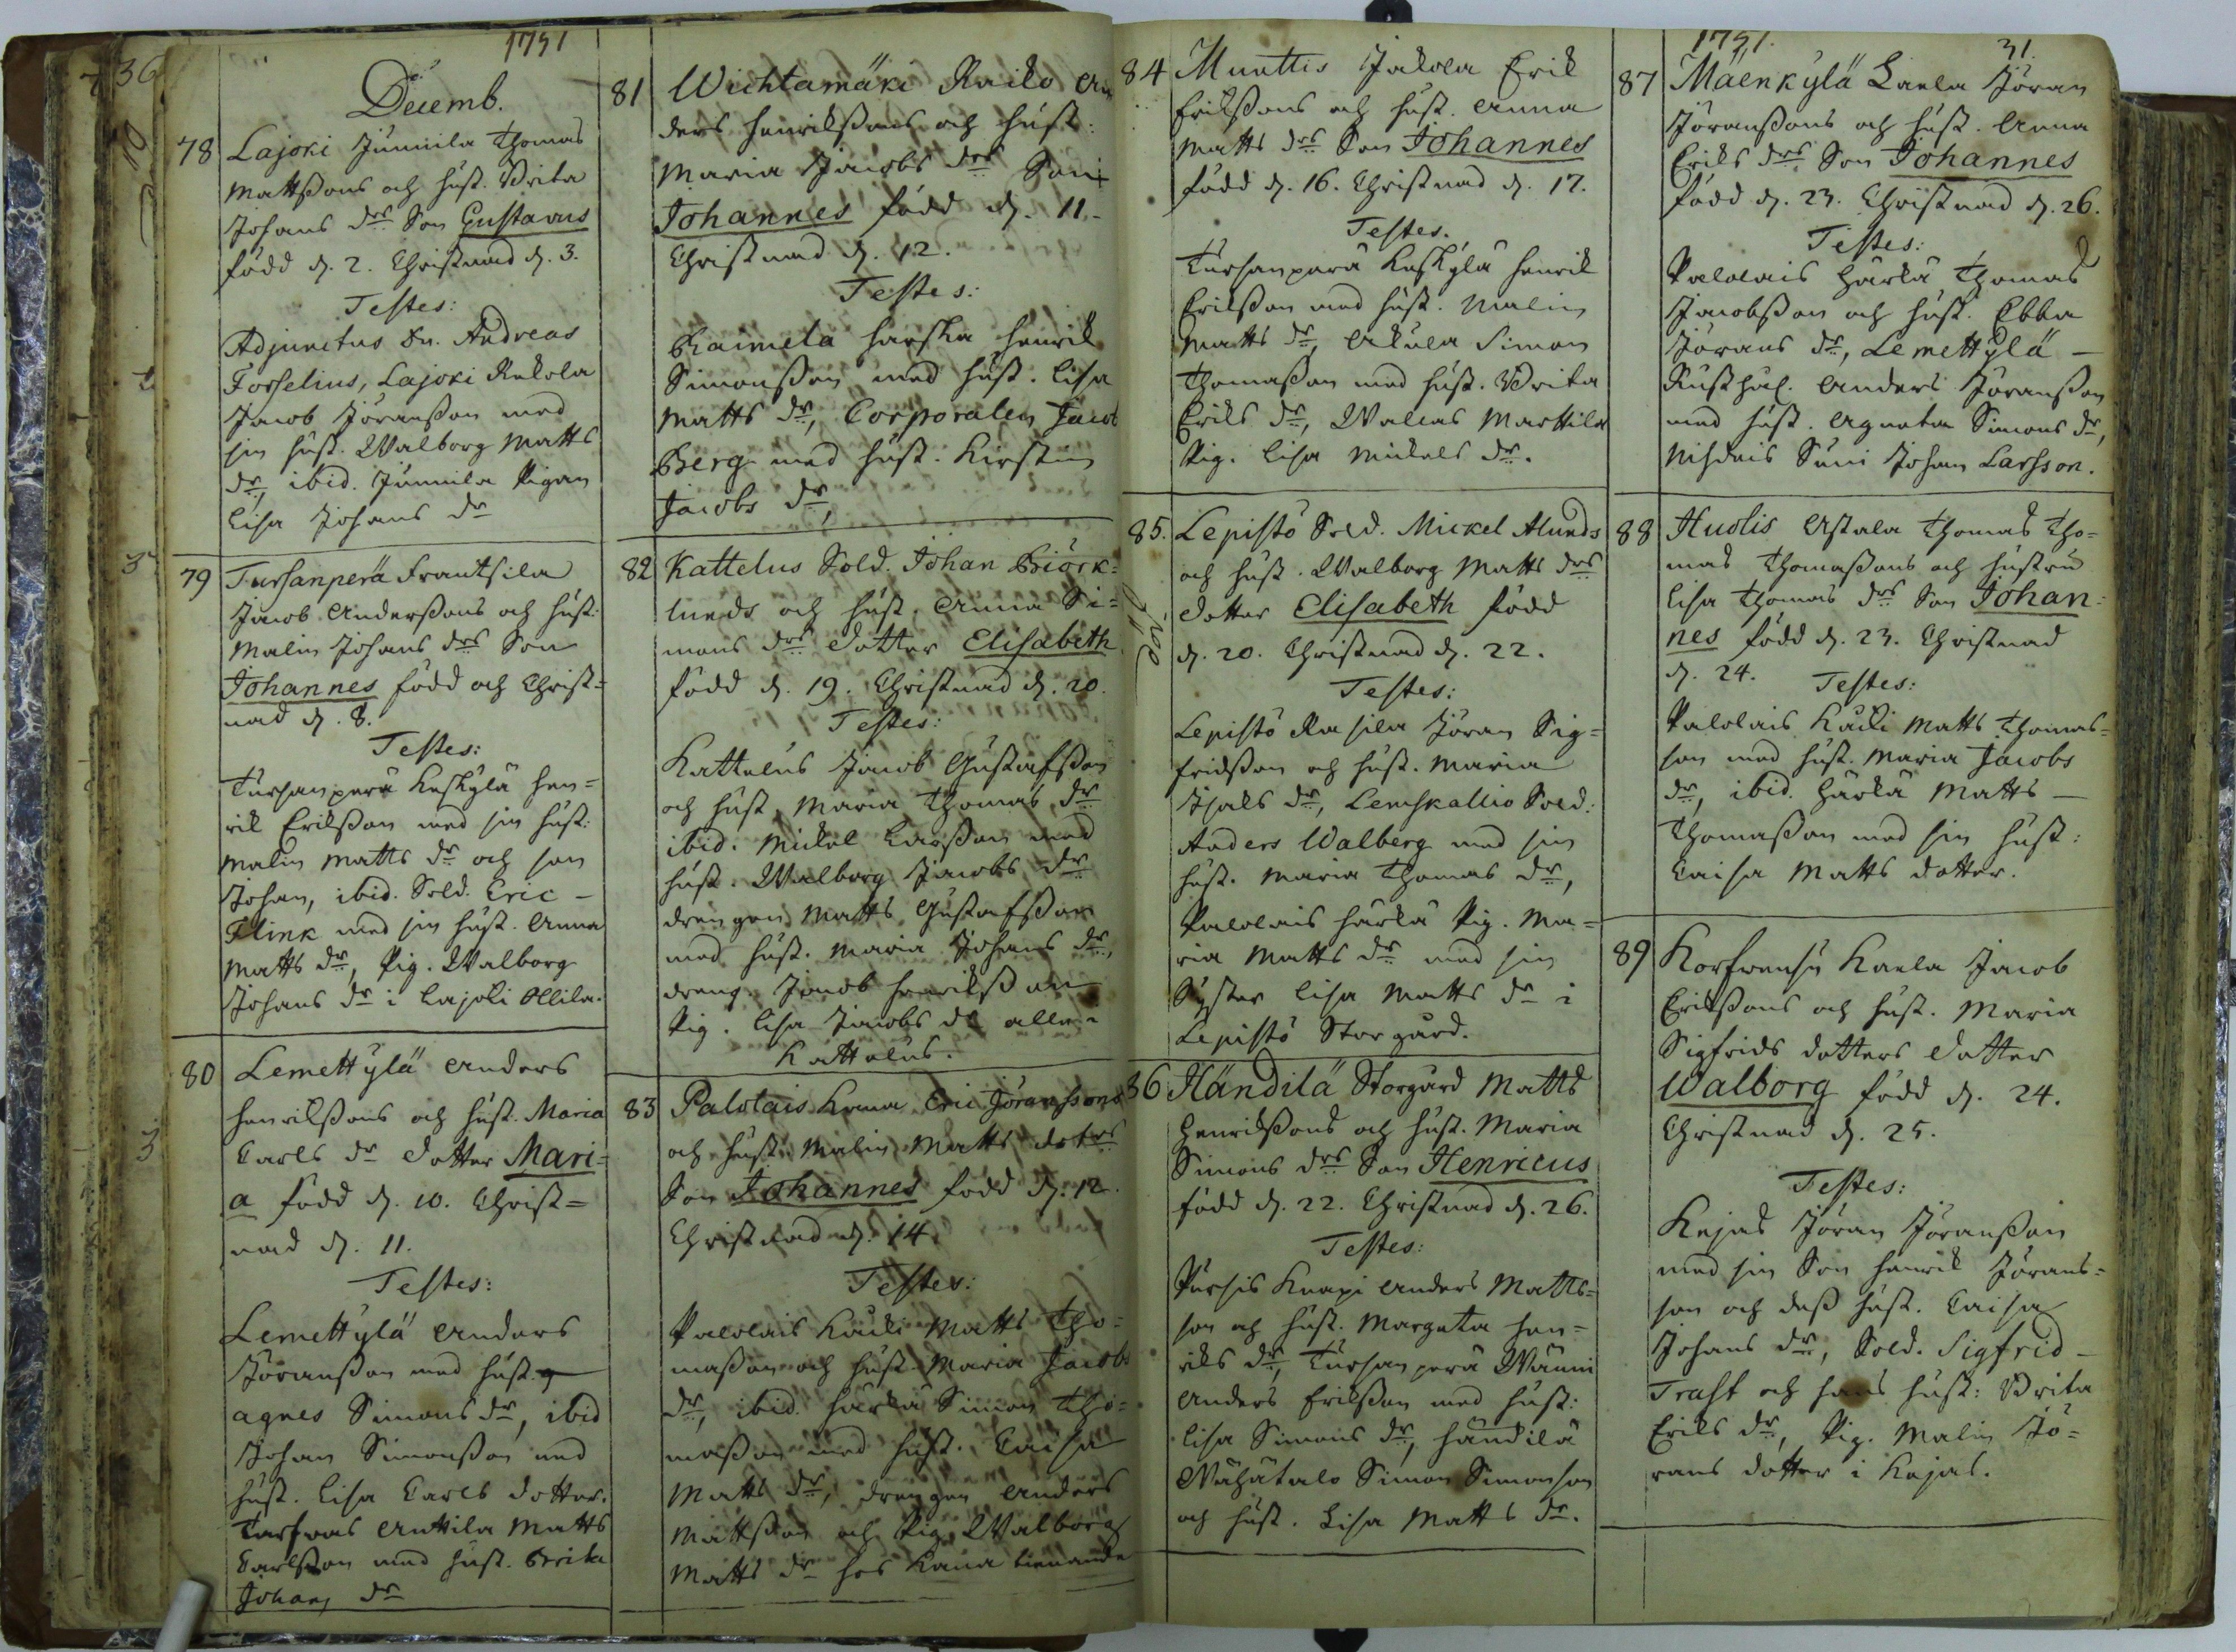 1751
Decemb.
78 Lajoki Junnila Thomas
Mattssons och hust. Brita
Johans drs Son Gustavus
född d. 2. Christnad d. 3.
Testes:
Adjunctus Dn. Andreas
Forselius, Lajoki Rekola
Jacob Jöransson med
sin hust. Walborg Matts
dr, ibid. Junnila Pigan
Lisa Johans dr
79 Tursanperä Frantsila
Jacob Anderssons och hust:
Malin Johans drs Son
Johannes född och Christ=
nad d. 8.
Testes:
Tursanperä Keskylä Hen=
rik Eriksson med sin hust:
Malin Matts dr och son
Johan, ibid. Sold. Eric -
Flink med sin hust. Anna
Matts dr, Pig. Walborg
Johans dr i Lajoki Ollila.
80 Lemettylä Anders
Henrikssons och hust. Maria
Carls dr dotter Mari=
a född d. 10. Christ=
nad d. 11.
Testes:
Lemettylä Anders
Jöransson med hust.
Agnes Simons dr, ibid
Johan Simonsson med
hust. Lisa Carls dotter.
Tarfwas Anttila Matts
Carlsson med hust. Brita
Johans dr
81 Wichtamäki Raiko An
ders Henrikssons och hust:
Maria Jacobs drs Son
Johannes född d. 11-
Christnad d. 12.
Testes:
Raimela Harska Henrik
Simonsson med hust. Lisa
Matts dr, Corporalen Jacob
Berg med hust: Kirstin
Jacobs dr,
82 Kattelus Sold. Johan Biörk=
lunds och hust. Anna Si=
mons drs dotter Elisabeth
född d. 19. Christnad d. 20.
Testes:
Kattelus Jacob Gustafsson
och hust. Maria Thomas dr
ibid. Mickel Larsson med
hust. Walborg Jacobs dr
drengen Matts Gustafsson
med hust. Maria Johans dr,
dreng. Jacob Henriksson
Pig. Lisa Jacobs dr alle i
Kattelus.
83 Palolais Krana Eric Jöranssons
och hust. Malin Matts dotrs
Son Johannes född d. 12.
Christnad d. 14.
Testes:
Palolais Kauki Matts Tho=
masson och hust. Maria Jacobs
dr, ibid. Härkä Simon Tho=
masson med hust. Caisa
Matts dr, drengen Anders
Mattsson och Pig. Walborg
Matts dr hos Kana tienande
84 Munttis Jakola Erik
Erikssons och hust. Anna
Matts drs Son Johannes
född d. 16. Christnad d. 17.
Testes.
Tursanperä Keskylä Henrik
Eriksson med hust. Malin
Matts dr, Akula Simon
Thomasson med hust. Brita
Eriks dr, Wallas Marttila
Pig. Lisa Mickels dr.
85. Lepistö Sold. Mickel Alunds
och hust. Walborg Matts drs
dotter Elisabeth född
d. 20. Christnad d. 22.
Testes:
Lepistö Rasila Jöran Sig=
fridsson och hust. Maria
Isaks dr, Lemskallio Sold:
Anders Walberg med sin
hust. Maria Thomas dr,
Palolais Härkä Pig. Ma=
ria Matts dr med sin
Syster Lisa Matts dr i
Lepistö Storgård.
86 Händilä Storgård Matts
Henrikssons och hust. Maria
Simons drs Son Henricus
född d. 22. Christnad d. 26.
Testes:
Pursis Knapi Anders Matts=
son och hust. Margeta Hen=
riks dr, Tursanperä Wänni
Anders Eriksson med hust:
Lisa Simons dr, Händilä
Wähätalo Simon Simonson
och hust. Lisa Matts dr.
1751. 31.
87 Mäenkylä Laula Jöran
Jöranssons och hust. Anna
Eriks drs Son Johannes
född d. 23. Christnad d. 26.
Testes:
Palolais Härkä Thomas
Jacobsson och hust. Ebba
Jörans dr, Lemettylä —
Rusth. Anders Jöransson
med hust. Agneta Simons dr,
Suni Johan Larsson.
88 Huolis Astala Thomas Tho=
mas Thomassons och hustru
Lisa Thomas drs Son Johan=
nes född d. 23. Christnad
d. 24. Testes:
Palolais Kauki Matts Thomas=
son med hust. Maria Jacobs
dr, ibid. Härkä Matts —
Thomasson med sin hust:
Caisa Matts dotter.
89 Korfwensu Kaula Jacob
Erikssons och hust. Maria
Sigfrids dotters dotter
Walborg född d. 24.
Christnad d. 25.
Testes:
Kujas Jöran Jöransson
med sin Son Henrik Jörans=
son och dess hust. Caisa
Johans dr, Sold. Sigfrid -
Trast och hans hust: Brita
Eriks dr, Pig. Malin Jö=
rans dotter i Kujas.